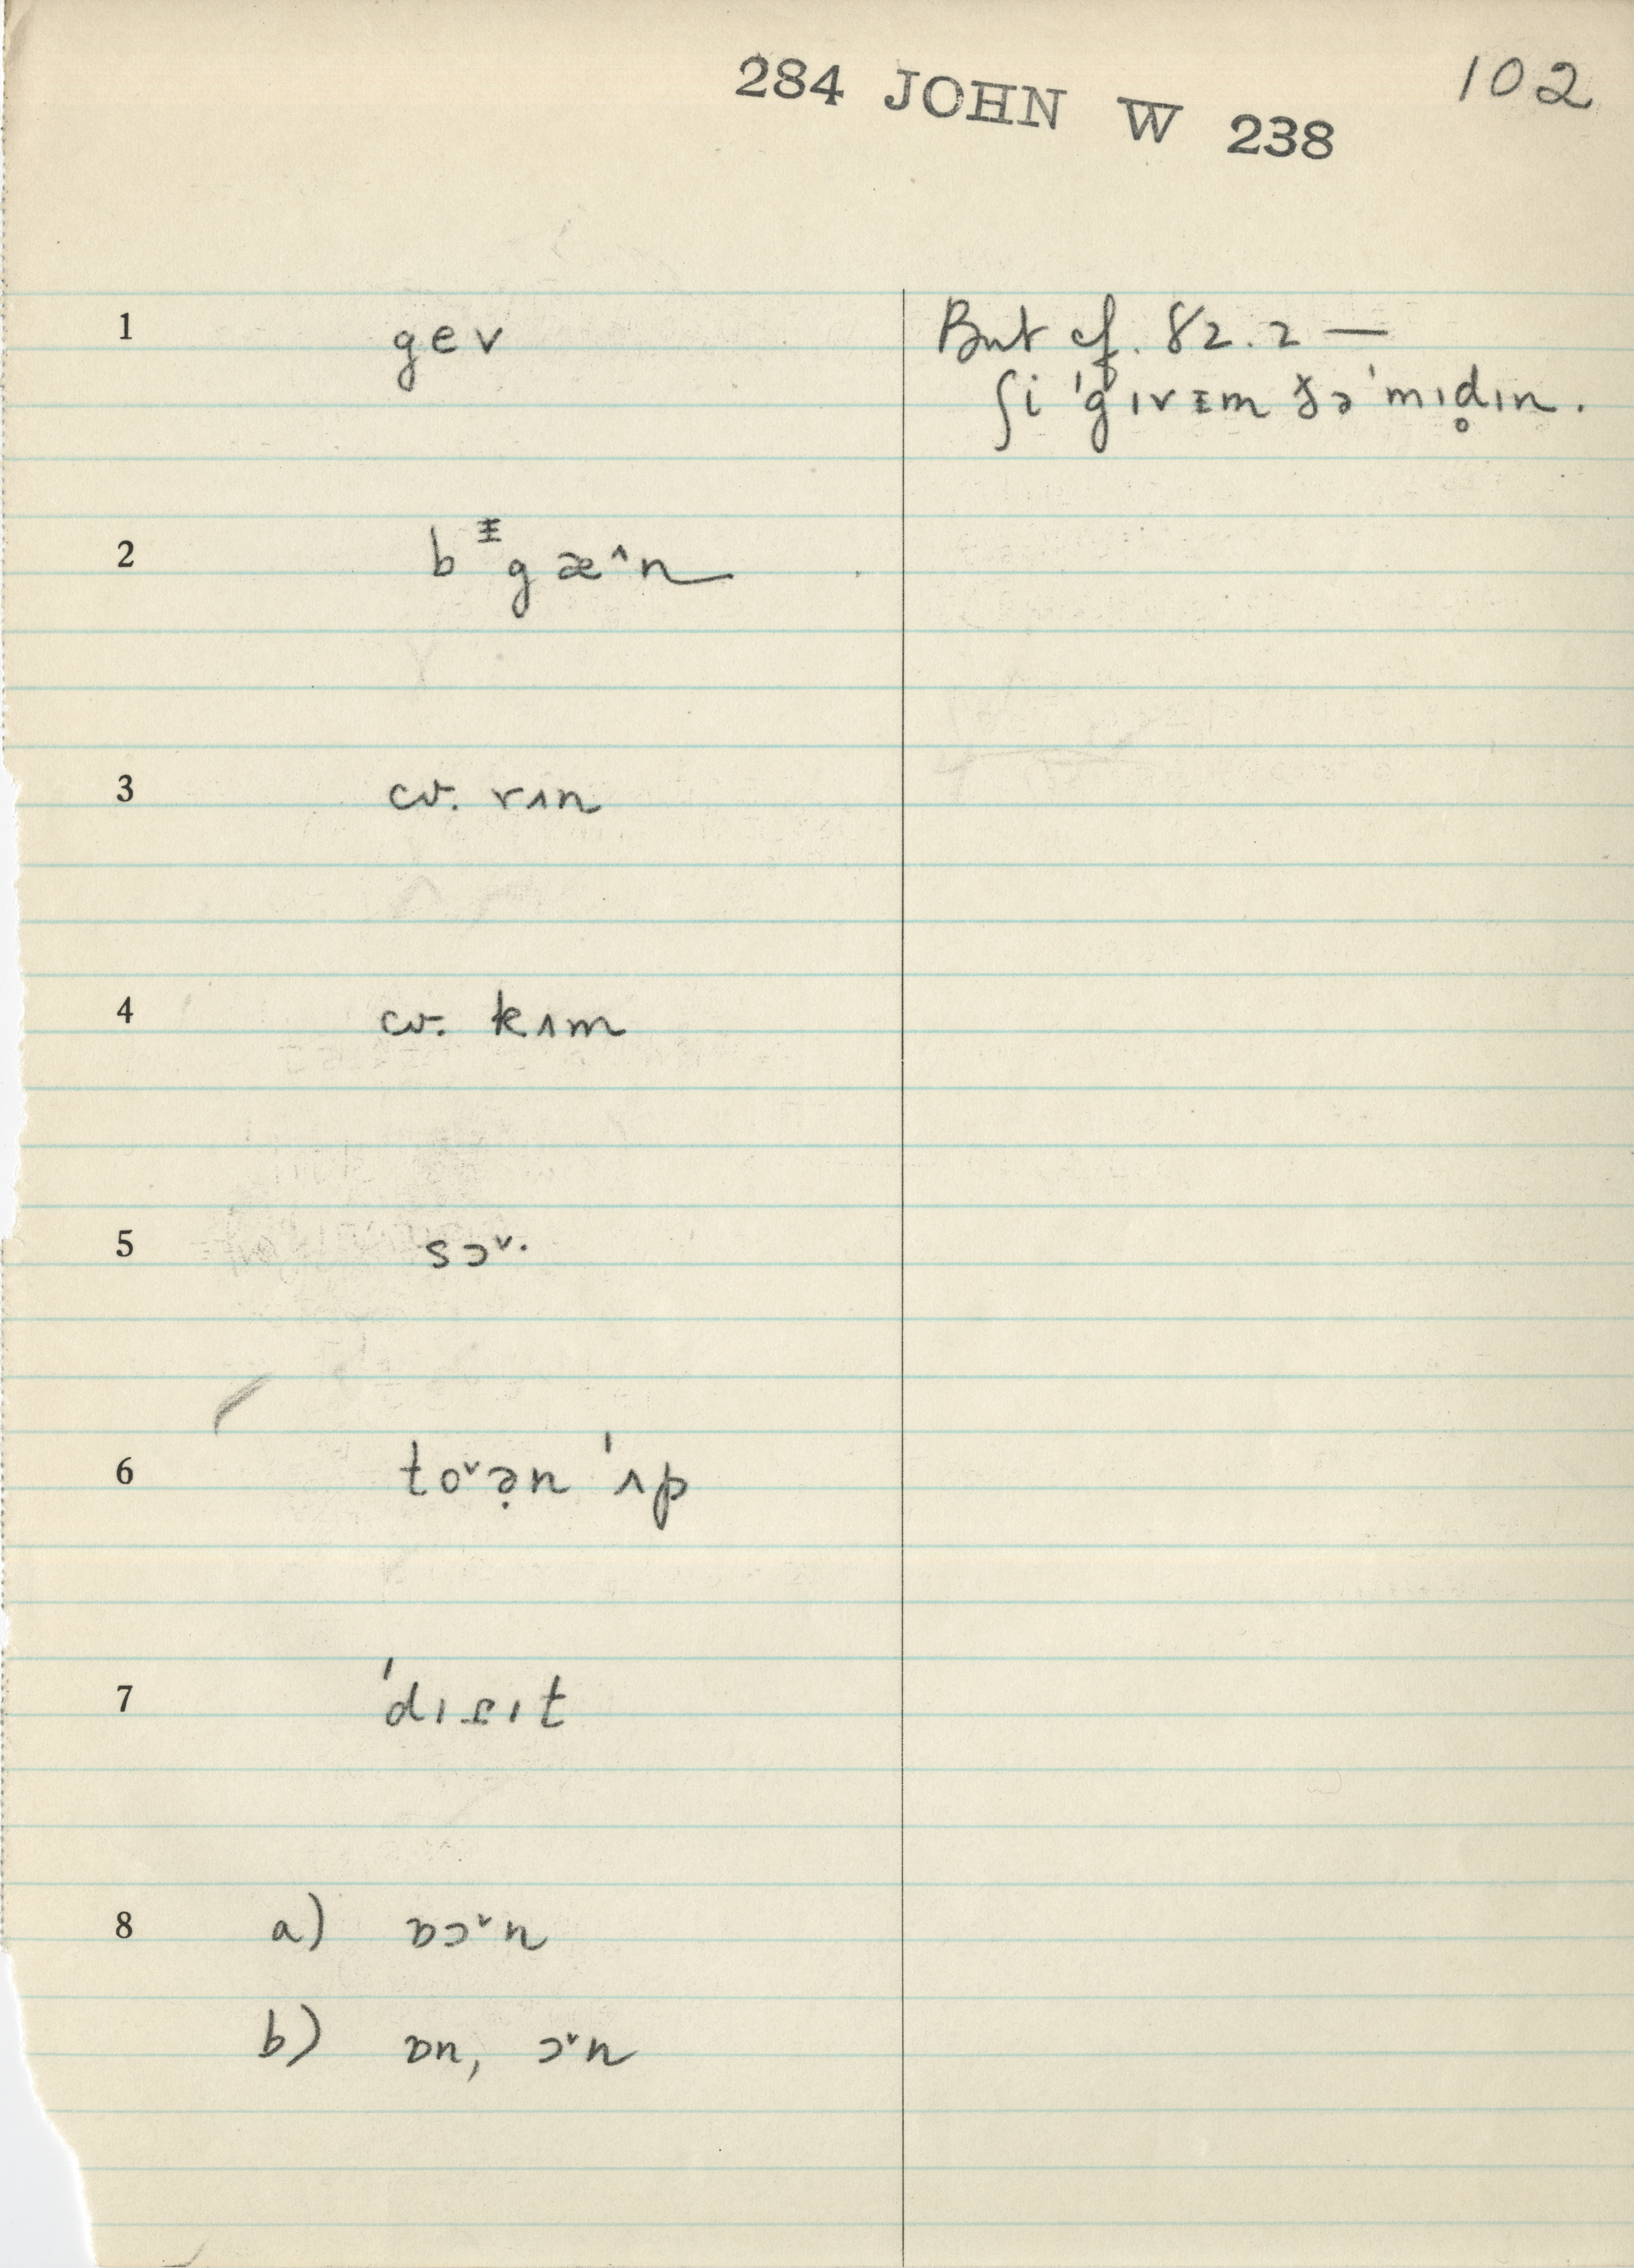 284 JOHN W 238
102
1 gev
But cf. 82.2 —
ʃi ˈgɪvɪm ðəˈmɪd̥ɪn.
2 bᵻgæ˄n
3 cv. rʌn
4 cv. kʌm
5 sɔ˅·
6 to˅ə̣n ˈʌp
7 ˈdɪsɪt
8 a) ɒɔ˅n
b) ɒn, ɔ˅n